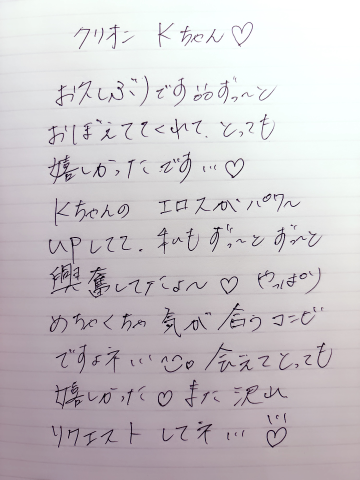 クリオン Kちゃん♡
お久しぶりです 為ずっ〜と
おぼえててくれて、とっても
嬉しかったです…♡
Kちゃんの エロスがパワー
UPしてて、私もずっ〜とずっ〜と
興奮してたょ〜♡ やっぱり
めちゃくちゃ気が合うコンビ
ですょネ… 会えてとっても
嬉しかった♡また沢山
リクエストしてネ…♡